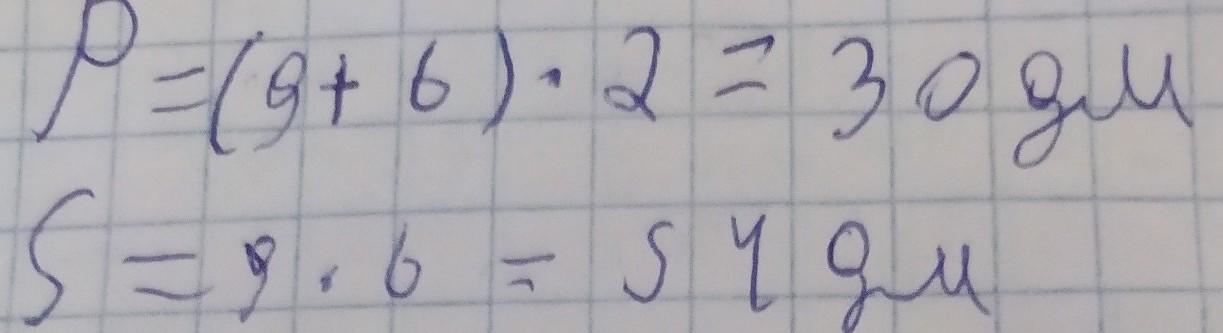 P = (9 + 6) · 2 = 30 дм
S = 9 · 6 = 54 дм